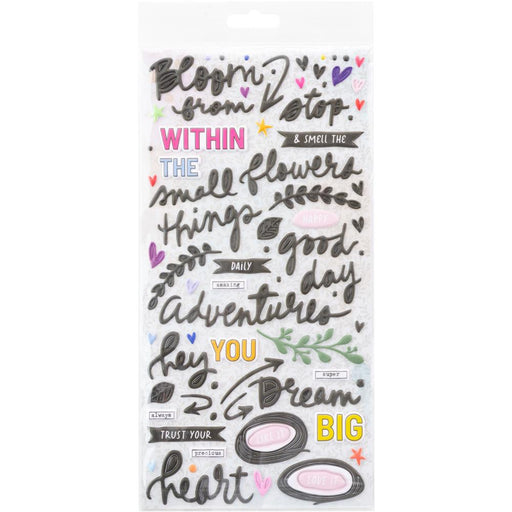 Bloom
from
stop
WITHIN
& SMELL THE
THE
small flowers
things
HAPPY
good
DAILY
day
amazing
Adventures
hey YOU
super
Dream
always
BIG
TRUST YOUR
LIKE IT
precious
heart
LOVE IT